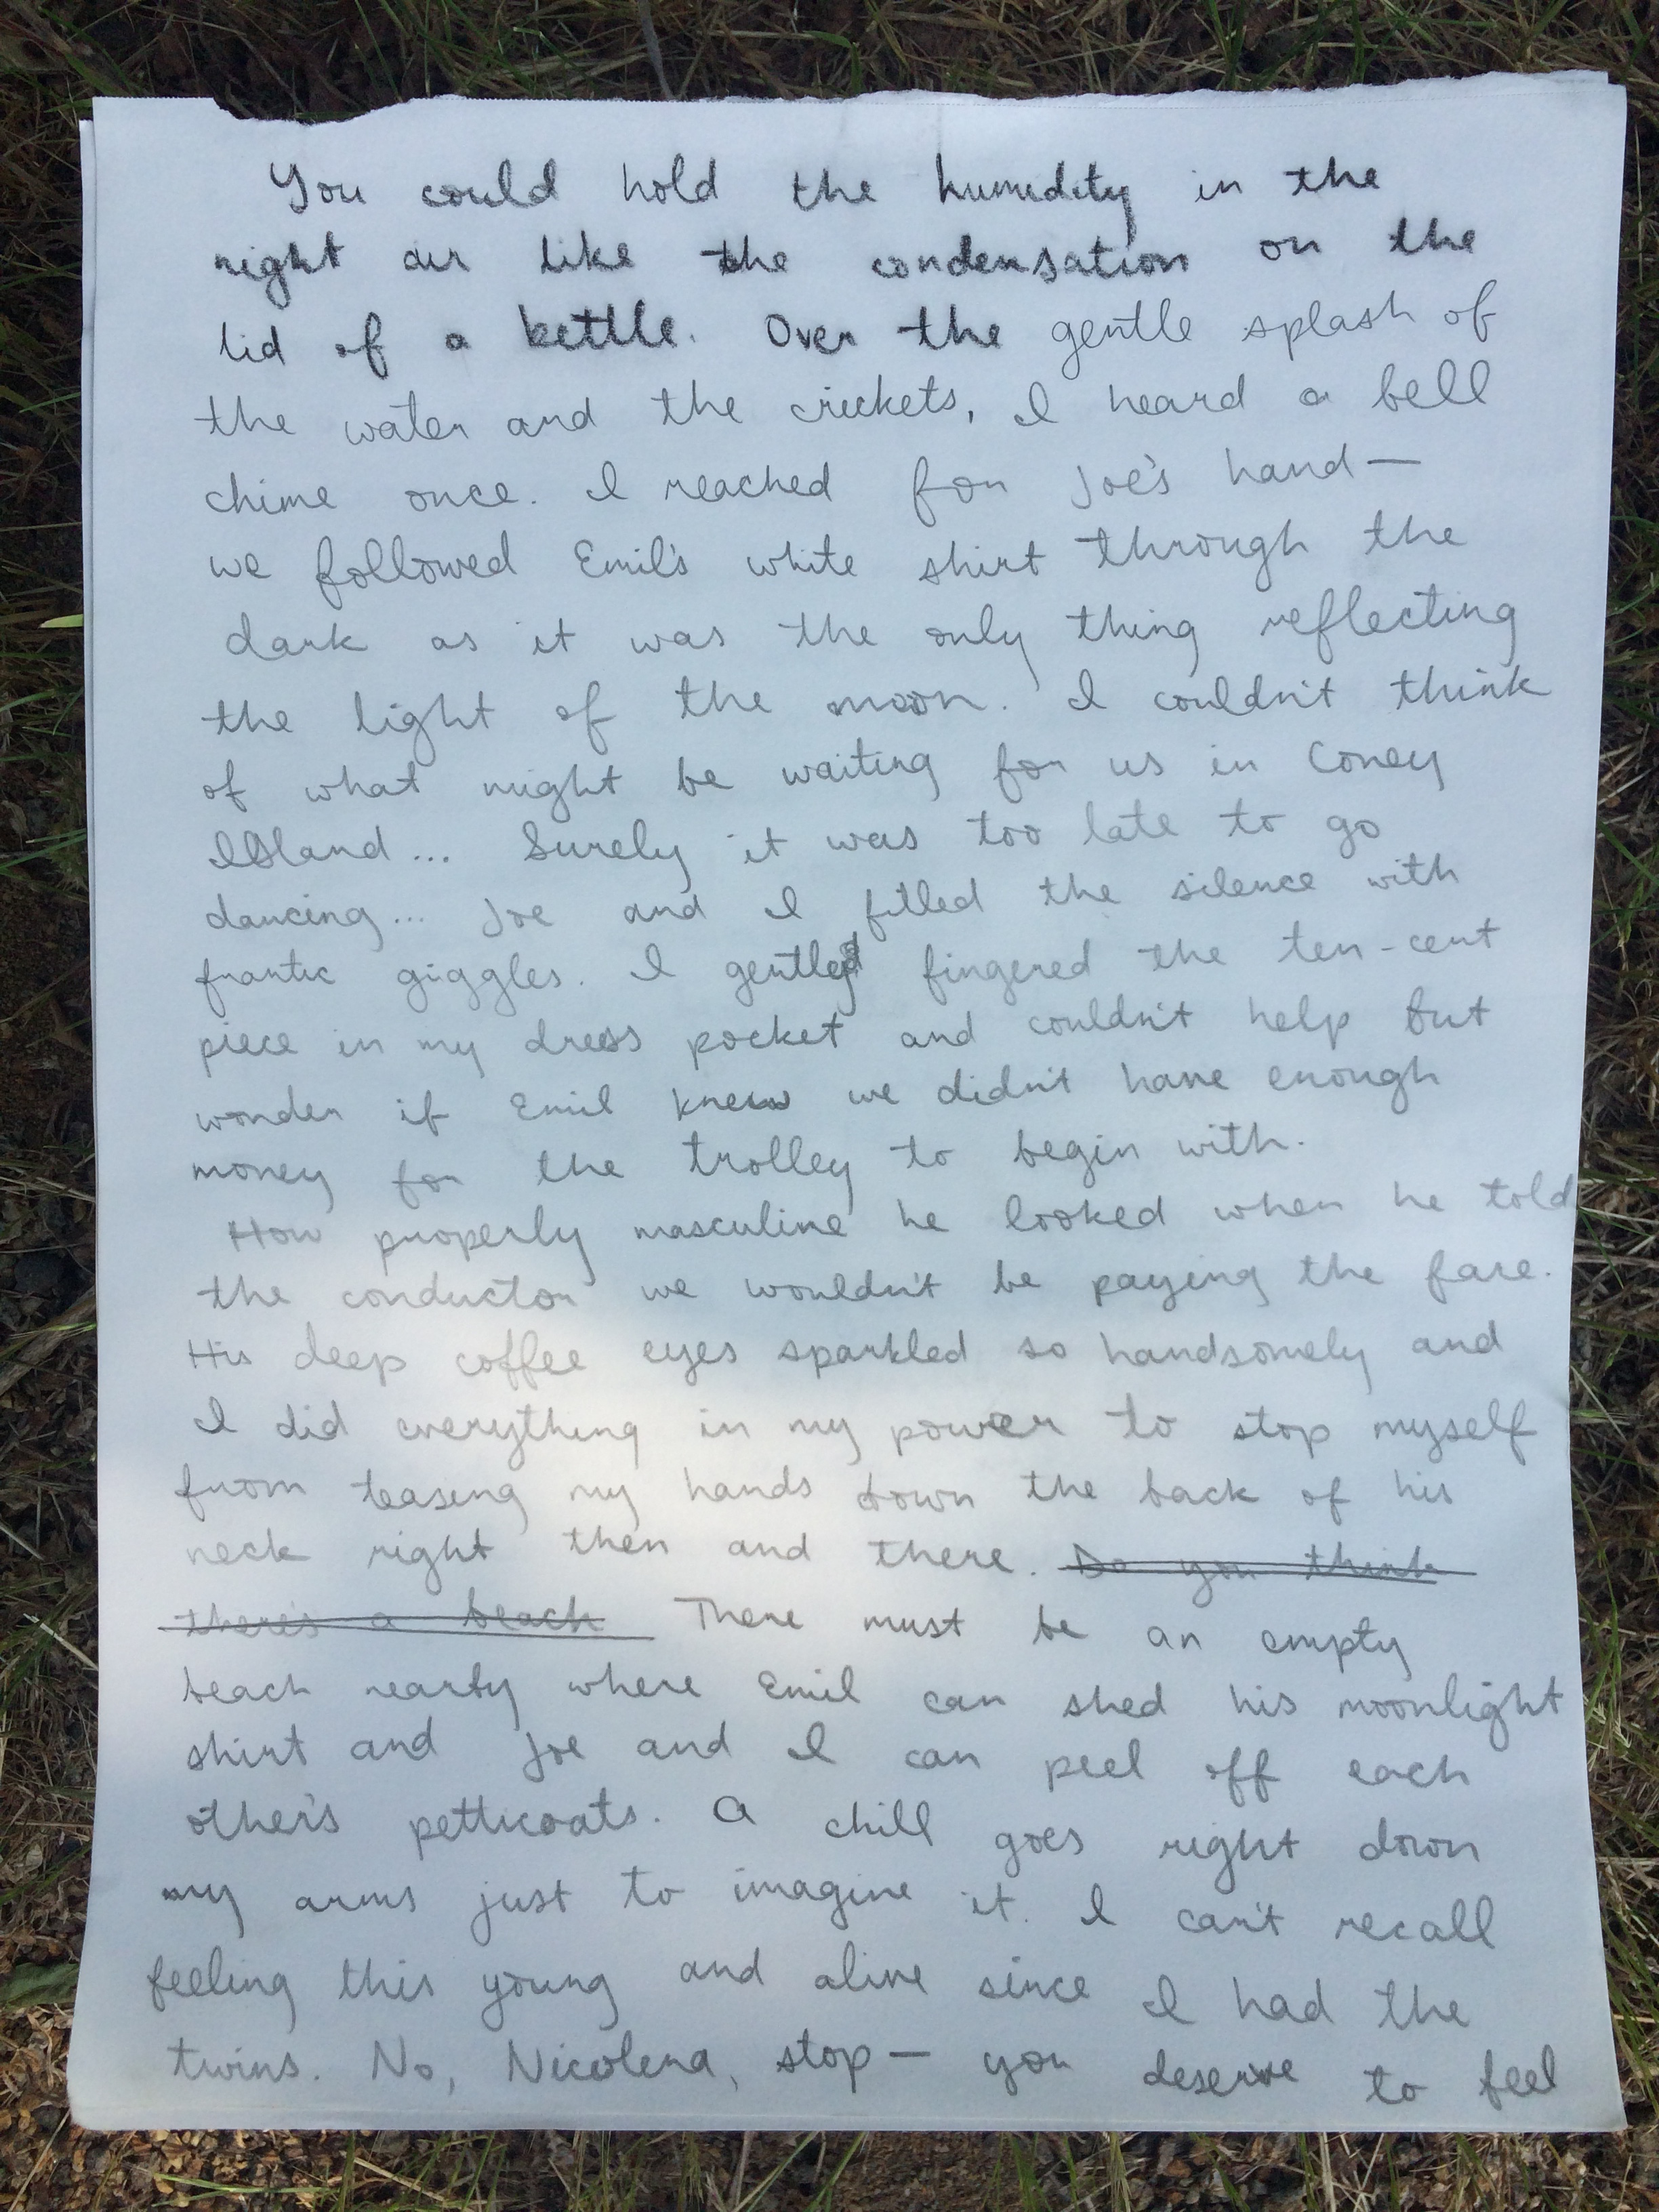 You could hold the humidity in the
night air like the condensation on the
lid of a kettle. Over the gentle splash of
the water and the crickets, I heard a bell
chime once. I reached for Joe's hand—
we followed Emil's white shirt through the
dark as it was the only thing reflecting
the light of the moon. I couldn't think
of what might be waiting for us in Coney
Island... Surely it was too late to go
dancing... Joe and I filled the silence with
frantic giggles. I gently fingered the ten-cent
piece in my dress pocket and couldn't help but
wonder if Emil knew we didn't have enough
money for the trolley to begin with.
How properly masculine he looked when he told
the conductor we wouldn't be paying the fare.
His deep coffee eyes sparkled so handsomely and
I did everything in my power to stop myself
from teasing my hands down the back of his
neck right then and there. Do you think
there's a beach There must be an empty
beach nearby where Emil can shed his moonlight
shirt and Joe and I can peel off each
other's petticoats. A chill goes right down
my arms just to imagine it. I can't recall
feeling this young and alive since I had the
twins. No, Nicolena, stop— you deserve to feel